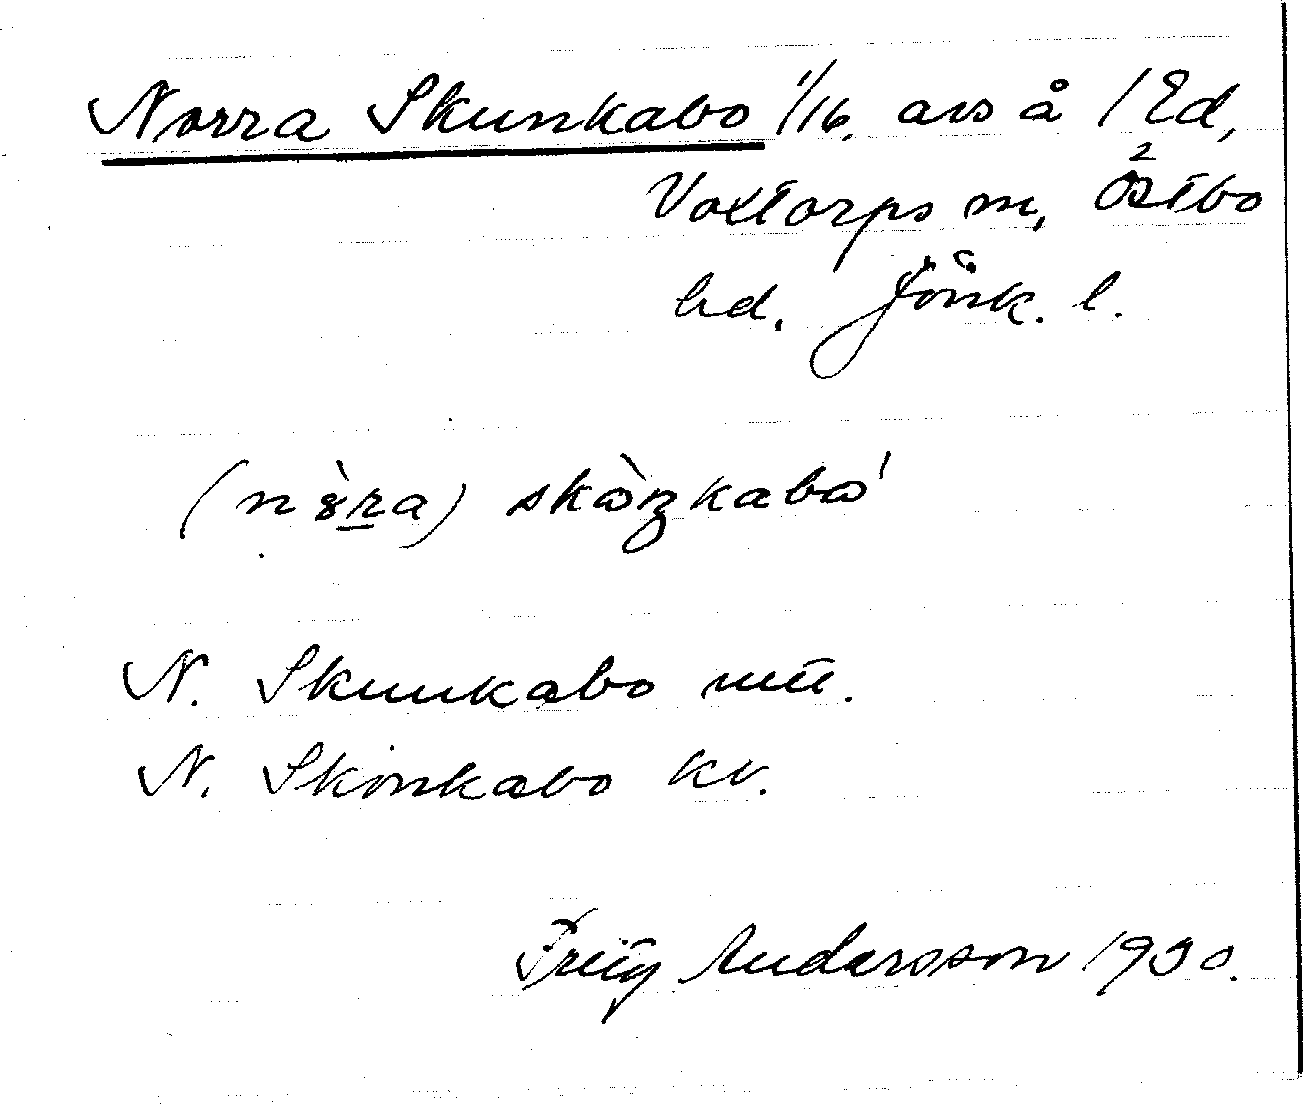 Norra Skunkabo 1/16. avs å 1 Ed,
Voxtorps sn, Östbo
hd. Jönk. l.
(nȣ̀ra) skòŋkabo'
N. Skunkabo mtl.
N. Skönkabo kv.
Andersson 1930.